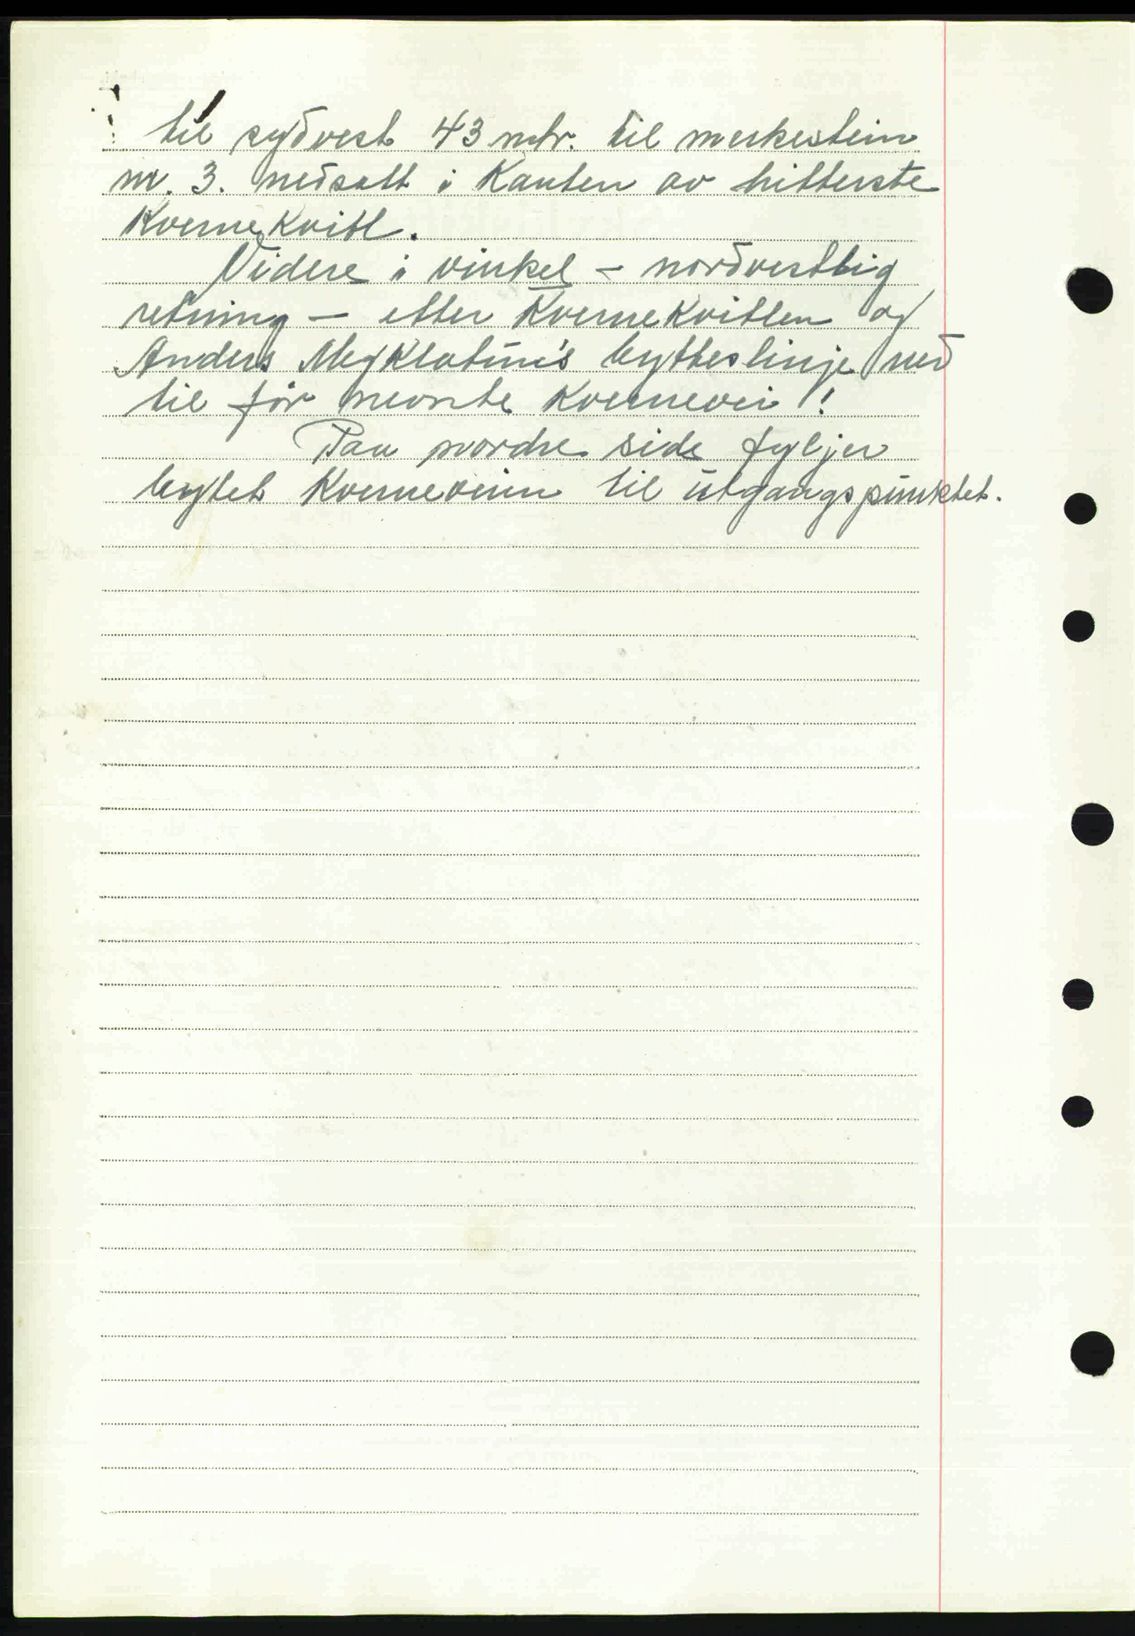 til sydvest 43 mtr. til merkestein
nr. 3. nedsatt i Kanten av hitterste
KverneKvitl.
Videre i vinkel – nordvestlig
retning – etter KverneKvitlen og
Anders Myklatun's bytteslinje ned
til før nevnte Kvernevei!
Paa nordre side fyljer
bytet Kverneveien til utgangspunktet.